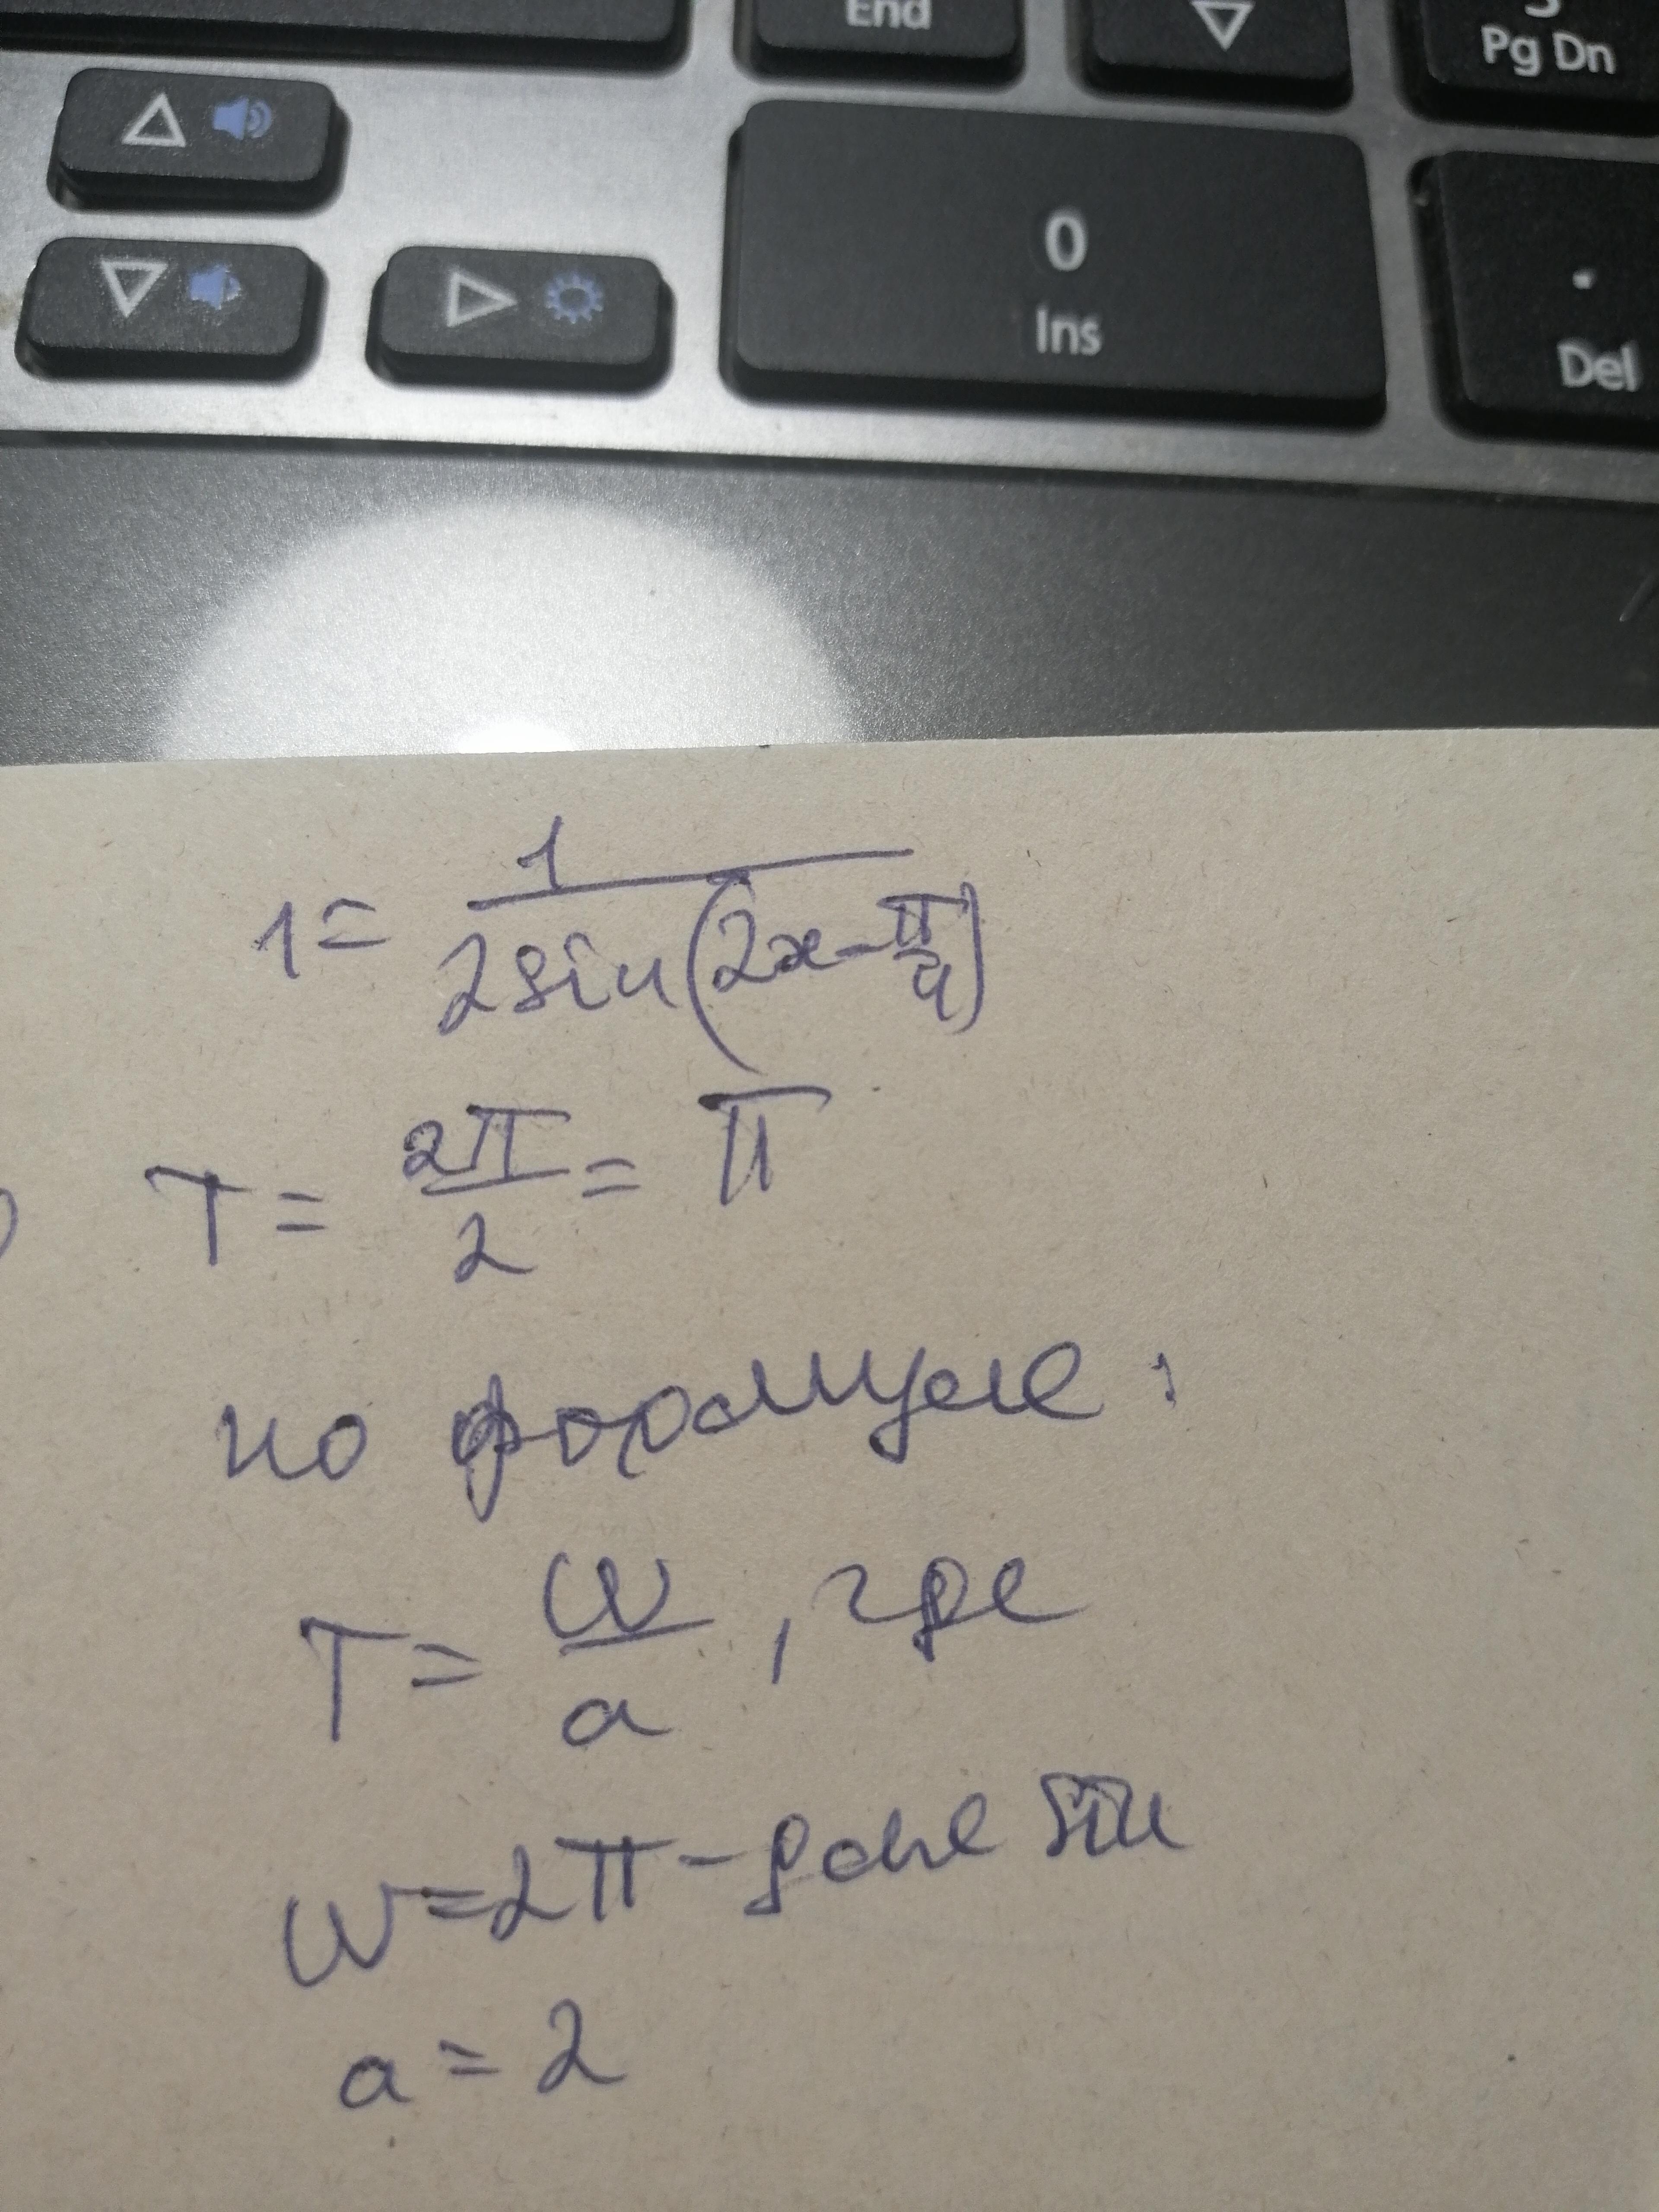 End
Pg Dn
0
Ins
.
Del
1 = 1 / 2sin(2x - π/4)
T = 2π/2 = π
по формуле:
T = W/a, где
W = 2π - для sin
a = 2